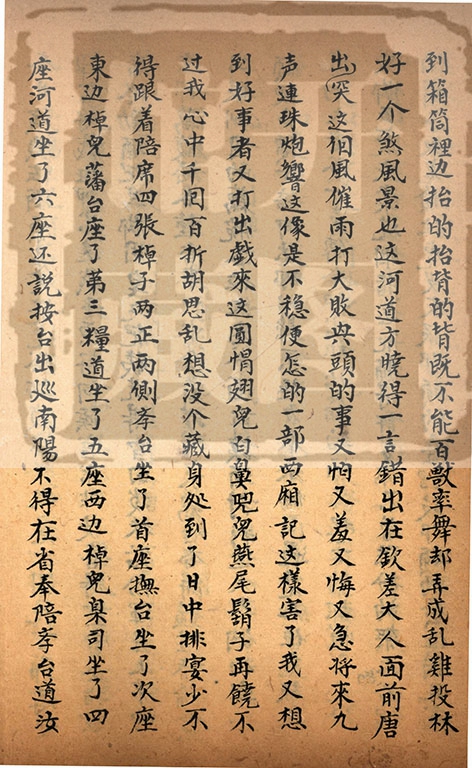 到箱筒裡边抬的抬背的背既不能百獸率舞却再成乱雞投林
好一个煞風景也这河道方曉得一言錯出在欽差大人面前唐
出突这個風催雨打大敗㒷頭的事又怕又羞又悔又急将來九
声連珠炮響这像是不稳便怎的一部西廂記这樣害了我又想
到好事者又打出戲來这圓㡌翅兒白鼻兜兒燕尾鬍子再饒不
过我心中千囘百折胡思乱想没个藏身処到了日中排宴少不
得跟着陪席四張棹子两正两側李台坐了首座撫台坐了次座
東边棹兒藩台座了第三糧道坐了五座西边棹兒臬司坐了四
座河道坐了六座还説按台出巡南陽不得在省奉陪李台道汝